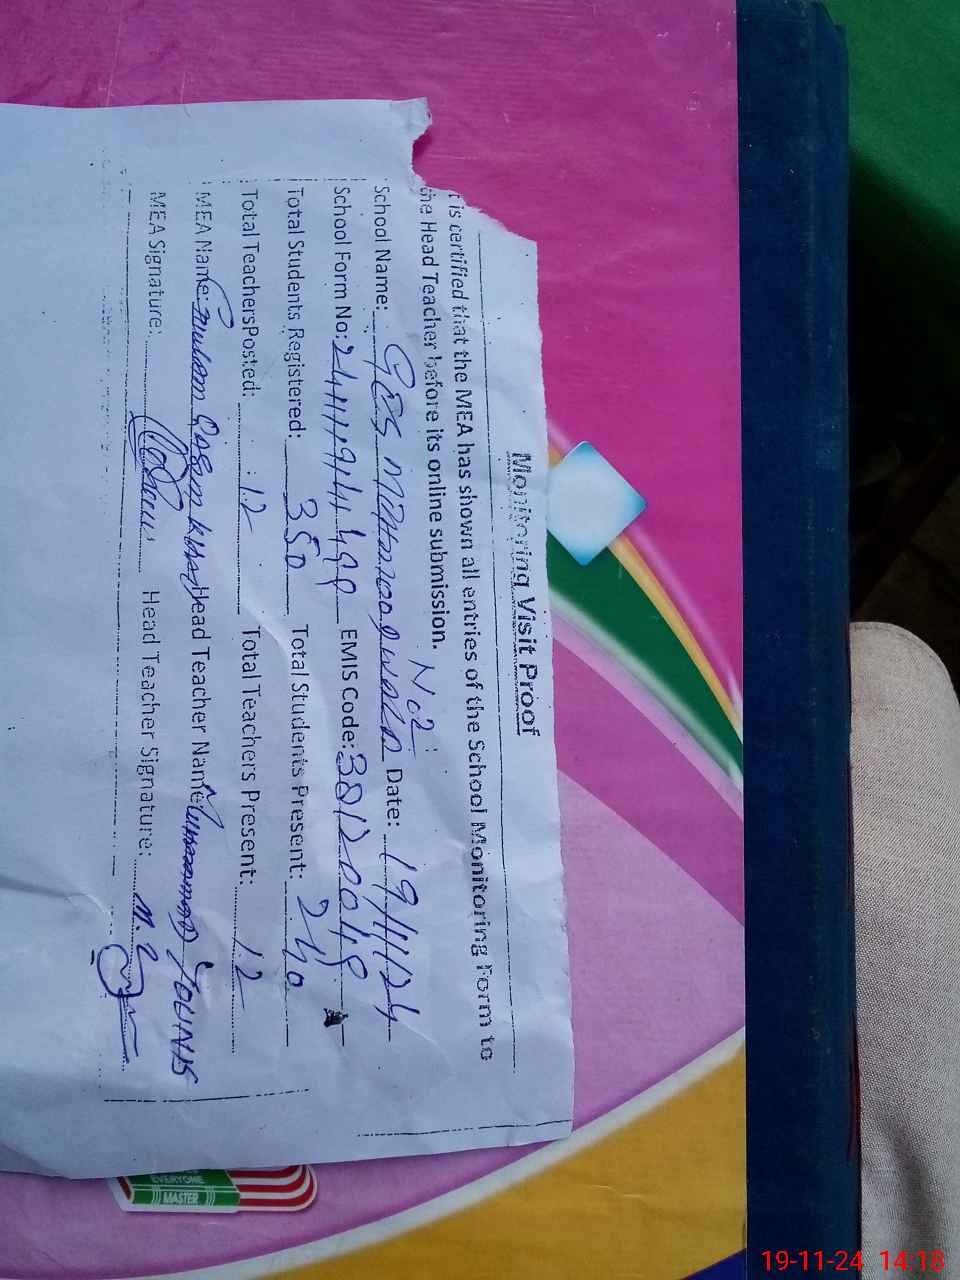 Monitoring Visit Proof
t is certified that the MEA has shown all entries of the School Monitoring Form to
the Head Teacher before its online submission.
School Name: GES No2 Date: 19/11/24
School Form No: EMIS Code: 38120048
Total Students Registered: 350 Total Students Present: 240
Total TeachersPosted: 12 Total Teachers Present: 12
MEA Name: Ghulam Qasim Khan Head Teacher Name: Muhammad Younus
MEA Signature: Head Teacher Signature: M. Y
EVERYONE
MASTER
19-11-24 14:18